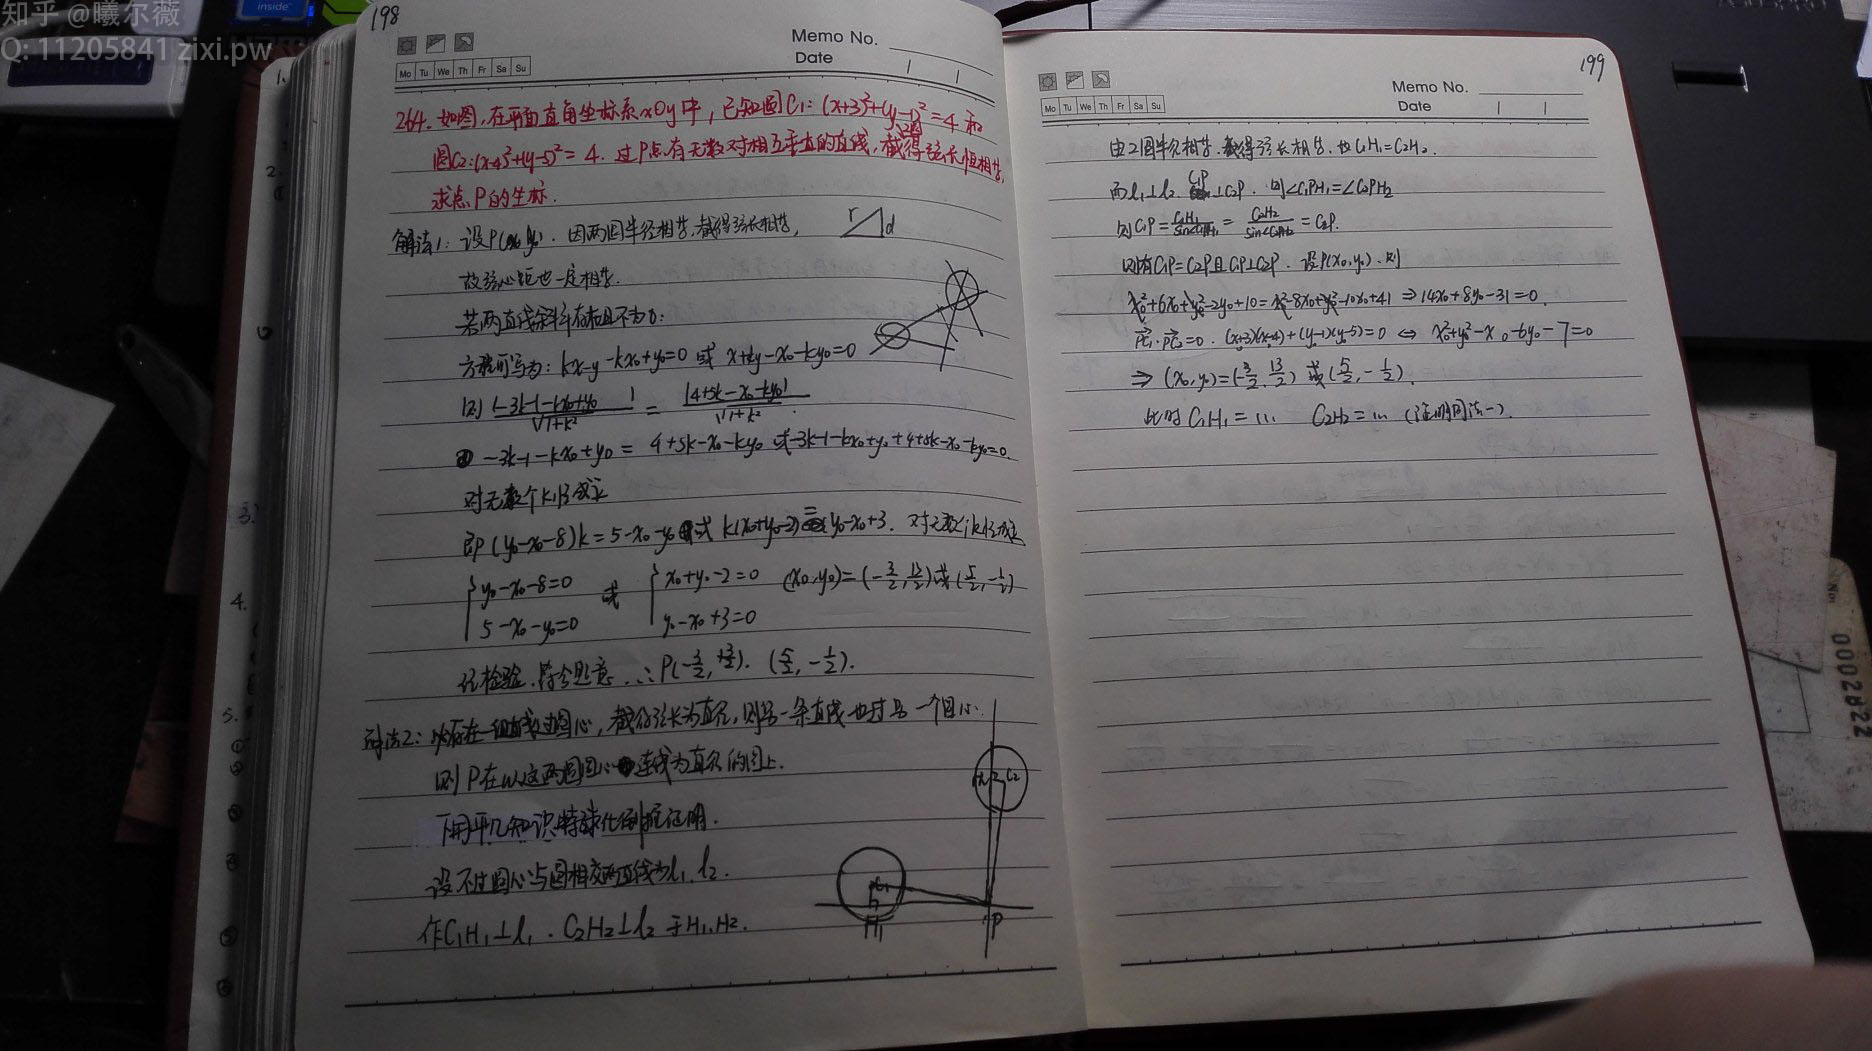 知乎 @曦尔薇
Q: 11205841 zixi.pw
inside
198
Memo No.
Date
Mo Tu We Th Fr Sa Su
264. 如图,在平面直角坐标系xOy中,已知圆C₁: (x+3)²+(y-1)²=4 和
圆C₂:(x-4)²+(y-5)²=4. 过P点有无数对相互垂直的直线,截得弦长恒相等,
求点P的坐标.
解法1: 设P(x₀,y₀). 因两圆半径相等,截得弦长相等,
r d
故弦心距也一定相等.
若两直线斜率存在且不为0:
方程可写为: kx-y-kx₀+y₀=0 或 x+ky-x₀-ky₀=0
则 |-3k-1-kx₀+y₀|/√1+k² = |4+5k-x₀-ky₀|/√1+k²
-3k-1-kx₀+y₀ = 4+5k-x₀-ky₀ 或-3k-1-kx₀+y₀+4+5k-x₀-ky₀=0.
对无数个k恒成立
即(y₀-x₀-8)k=5-x₀-y₀ 或 k(x₀+y₀-2)=y₀-x₀+3. 对无数个k恒成立
{y₀-x₀-8=0 或 {x₀+y₀-2=0 (x₀,y₀)=(-3/2,13/2)或(5/2,-1/2)
5-x₀-y₀=0 y₀-x₀+3=0
经检验,符合题意 ∴P(-3/2, 13/2). (5/2, -1/2).
解法2: 截得弦长为直径,则另一条直线也过另一个圆心.
则P在以这两个圆圆心连线为直径的圆上.
下用平几知识 证明.
设不过圆心与圆相交两直线为l₁,l₂.
作C₁H₁⊥l₁. C₂H₂⊥l₂ 于H₁,H₂.
C₂
C₁
H₁
P
199
Memo No.
Date
Mo Tu We Th Fr Sa Su
由2圆半径相等,截得弦长相等,也C₁H₁=C₂H₂.
而l₁⊥l₂. C₁P⊥C₂P. 则∠C₁PH₁=∠C₂PH₂
则C₁P=C₁H₁/sin∠C₁PH₁=C₂H₂/sin∠C₂PH₂=C₂P.
则有C₁P=C₂P且C₁P⊥C₂P. 设P(x₀,y₀).则
x₀²+6x₀+y₀²-2y₀+10=x₀²-8x₀+y₀²-10y₀+41 ⇒14x₀+8y₀-31=0.
PC₁·PC₂=0. (x₀+3)(x₀-4)+(y₀-1)(y₀-5)=0 ⇔ x₀²+y₀²-x₀-6y₀-7=0
⇒ (x₀,y₀)=(-3/2,13/2) 或(5/2,-1/2).
此时C₁H₁=... C₂H₂=... (证明同法一).
0002822